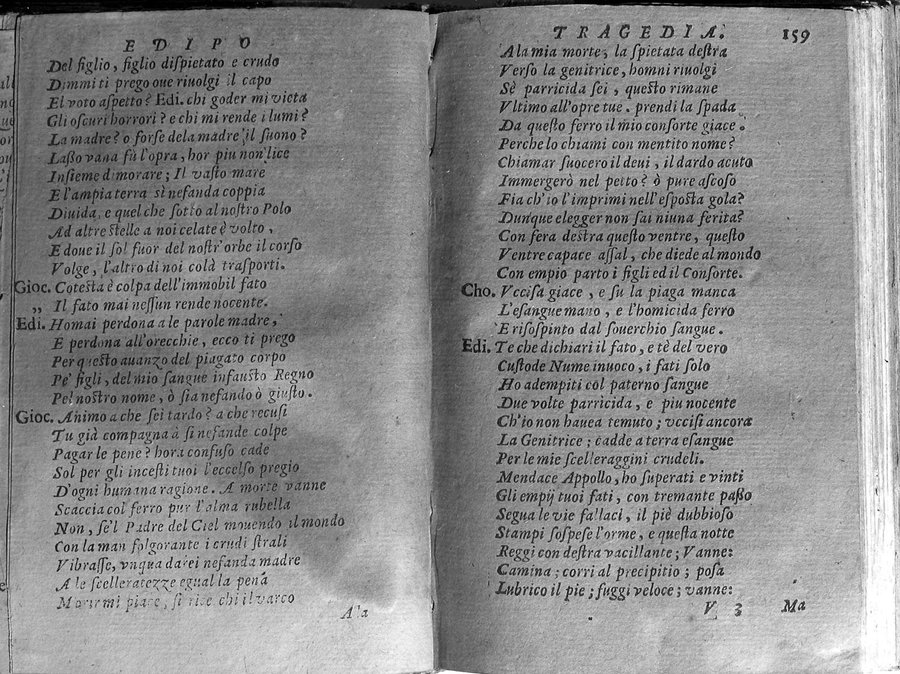 EDIPO
Del figlio, figlio diſpietato e crudo
Dimmi ti prego oue riuolgi il capo
El voto aſpetto? Edi. chi goder mi vieta
Gli oſcuri horrori? e chi mi rende i lumi?
La madre? o forſe de la madre il ſuono?
Laſſo vana fù l'opra, hor piu non lice
Inſieme dimorare; Il vaſto mare
E l'ampia terra sì nefanda coppia
Diuida, e quel che ſotto al noſtro Polo
Ad altre ſtelle a noi celate è volto,
E doue il ſol fuor del noſtr'orbe il corſo
Volge, l'altro di noi colà traſporti.
Gioc. Coteſta è colpa dell'immobil fato
„ Il fato mai neſſun rende nocente.
Edi. Homai perdona a le parole madre,
E perdona all'orecchie, ecco ti prego
Per queſto auanzo del piagato corpo
Pe' figli, del mio ſangue infauſto Regno
Pel noſtro nome, ò ſia nefando ò giuſto.
Gioc. Animo a che ſei tardo? a che recuſi
Tu già compagna à sì nefande colpe
Pagar le pene? hora confuſo cade
Sol per gli inceſti tuoi l'eccelſo pregio
D'ogni humana ragione. A morte vanne
Scaccia col ferro pur l'alma rubella
Non, ſe'l Padre del Ciel mouendo il mondo
Con la man folgorante i crudi ſtrali
Vibraſſe, vnqua darei nefanda madre
A le ſcelleratezze egual la pena
Morir mi piace, ſi chi il varco
A la
TRAGEDIA. 159
A la mia morte, la ſpietata deſtra
Verſo la genitrice, homni riuolgi
Sè parricida ſei, queſto rimane
Vltimo all'opre tue. prendi la ſpada
Da queſto ferro il mio conſorte giace.
Perche lo chiami con mentito nome?
Chiamar ſuocero il deui, il dardo acuto
Immergerò nel petto? ò pure aſcoſo
Fia ch'io l'imprimi nell'eſpoſta gola?
Dunque elegger non ſai niuna ferita?
Con fera deſtra queſto ventre, queſto
Ventre capace aſſai, che diede al mondo
Con empio parto i figli ed il Conſorte.
Cho. Vcciſa giace, e ſu la piaga manca
L'eſangue mano, e l'homicida ferro
E riſoſpinto dal ſouerchio ſangue.
Edi. Te che dichiari il fato, e tè del vero
Cuſtode Nume inuoco, i fati ſolo
Ho adempiti col paterno ſangue
Due volte parricida, e piu nocente
Ch'io non hauea temuto; vcciſi ancora
La Genitrice; cadde a terra eſangue
Per le mie ſcelleraggini crudeli.
Mendace Appollo, ho ſuperati e vinti
Gli empij tuoi fati, con tremante paſſo
Segua le vie fallaci, il piè dubbioſo
Stampi ſoſpeſe l'orme, e queſta notte
Reggi con deſtra vacillante; Vanne:
Camina; corri al precipitio; poſa
Lubrico il pie; fuggi veloce; vanne:
V 3 Ma